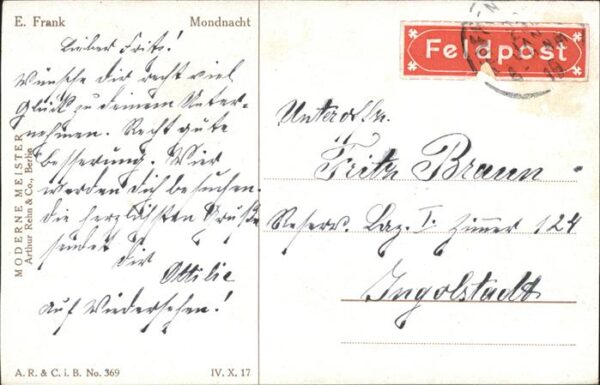 E. Frank Mondnacht
Lieber Fritz!
Wünsche dir recht viel
Glück zu deinem Unter-
nehmen. Recht gute
Besserung. Wir
werden dich besuchen.
Die herzlichsten Grüße
sendet dir
Ottilie
Auf Wiedersehen!
MODERNE MEISTER
Arthur Rehn & Co., Berlin
A. R. & C. i. B. No. 369 IV. X. 17
Feldpost
Fritz Braun
Reserv. Laz. I. Zimer 124
Ingolstadt